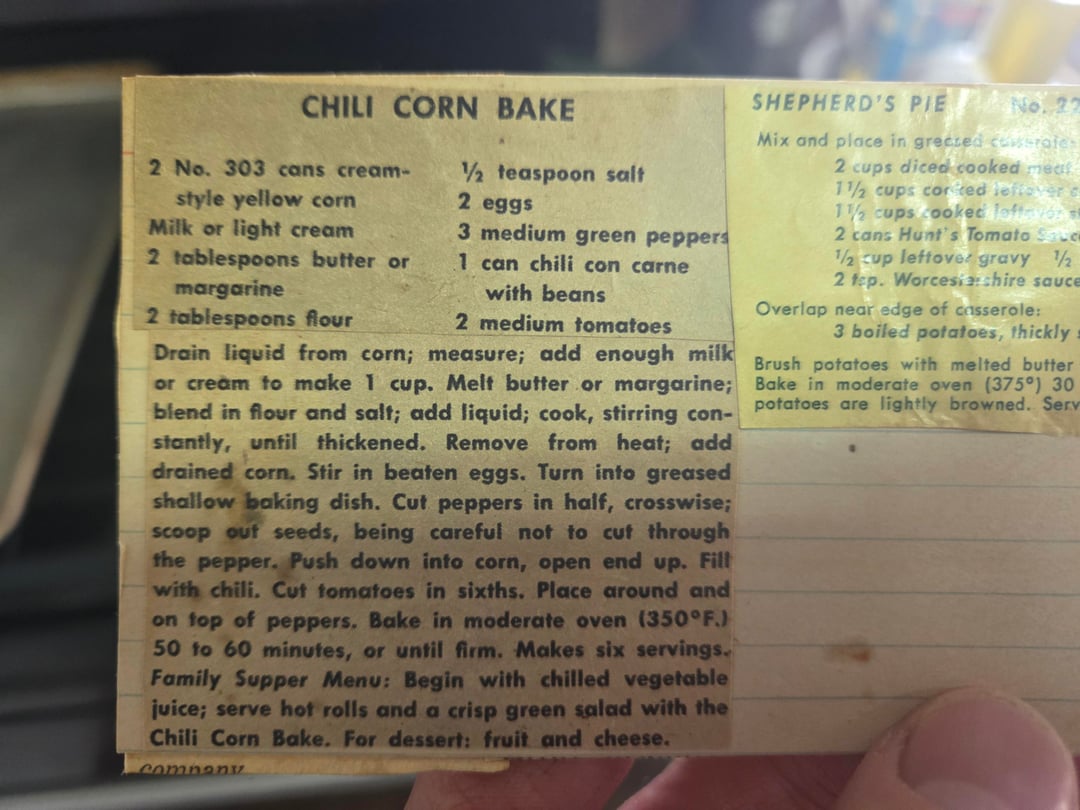 CHILI CORN BAKE
2 No. 303 cans cream-
style yellow corn
Milk or light cream
2 tablespoons butter or
margarine
2 tablespoons flour
½ teaspoon salt
2 eggs
3 medium green peppers
1 can chili con carne
with beans
2 medium tomatoes
Drain liquid from corn; measure; add enough milk
or cream to make 1 cup. Melt butter or margarine;
blend in flour and salt; add liquid; cook, stirring con-
stantly, until thickened. Remove from heat; add
drained corn. Stir in beaten eggs. Turn into greased
shallow baking dish. Cut peppers in half, crosswise;
scoop out seeds, being careful not to cut through
the pepper. Push down into corn, open end up. Fill
with chili. Cut tomatoes in sixths. Place around and
on top of peppers. Bake in moderate oven (350°F.)
50 to 60 minutes, or until firm. Makes six servings.
Family Supper Menu: Begin with chilled vegetable
juice; serve hot rolls and a crisp green salad with the
Chili Corn Bake. For dessert: fruit and cheese.
company
SHEPHERD'S PIE No. 22
Mix and place in greased casserole:
2 cups diced cooked meat
1½ cups cooked leftover
1½ cups cooked leftover
2 cans Hunt's Tomato Sauce
½ cup leftover gravy ½
2 tsp. Worcestershire sauce
Overlap near edge of casserole:
3 boiled potatoes, thickly
Brush potatoes with melted butter
Bake in moderate oven (375°) 30
potatoes are lightly browned. Serv